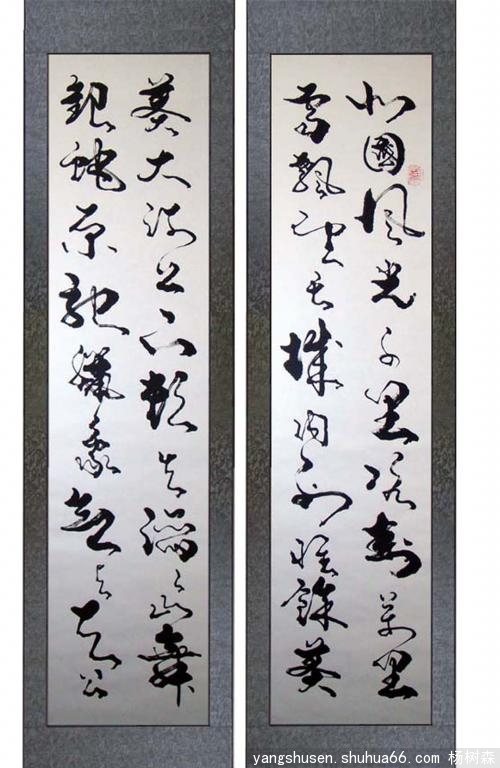 北國風光千里冰封萬里
雪飄望長城內外惟餘莽
莽大河上下頓失滔〻山舞
銀蛇原馳蠟象欲與天公
yangshusen.shuhua66.com 杨树森